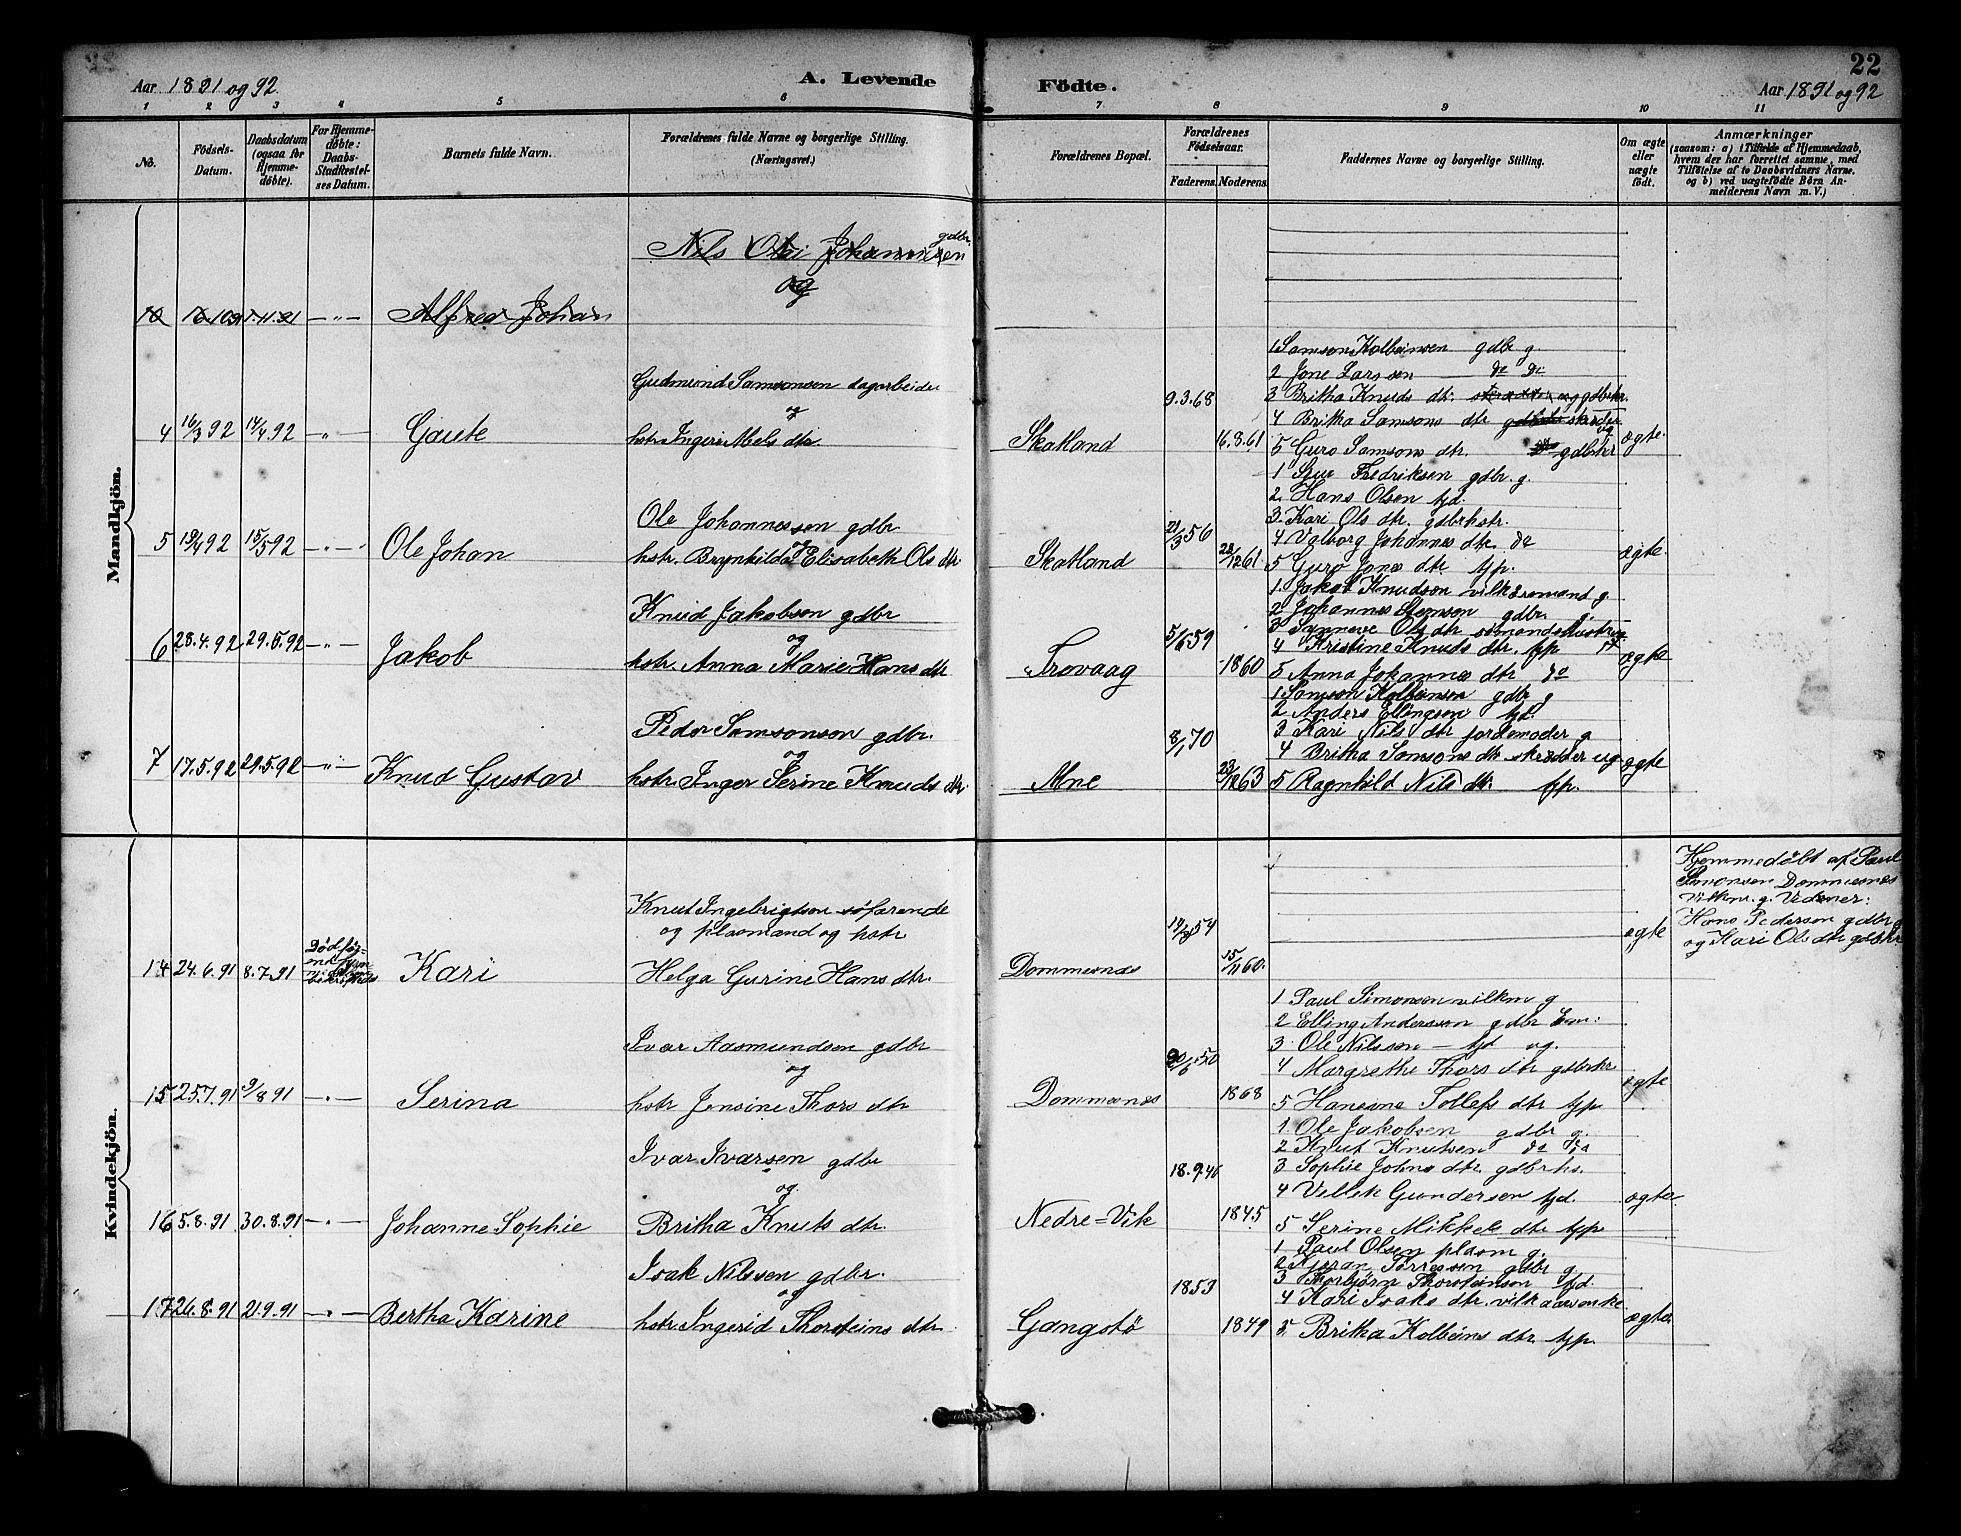 22
Aar 1891 og 92.
A. Levende
Födte.
Aar 1891 og 92
1 2 3 4 5 6 7 8 9 10 11
No.
Födsels-
Datum.
Daabsdatum
(ogsaa for
Hjemme-
döbte).
For Hjemme-
döbte:
Daabs-
Stadfæstel-
ses Datum.
Barnets fulde Navn.
Forældrenes fulde Navne og borgerlige Stilling.
(Næringsvei.)
Forældrenes Bopæl.
Forældrenes
Födselsaar.
Faderens.
Moderens.
Faddernes Navne og borgerlige Stilling.
Om ægte
eller
uægte
födt.
Anmærkninger
(saasom: a) i Tilfælde af Hjemmedaab,
hvem der har forrettet samme, med
Tilföielse af to Daabsvidners Navne.
og b) ved uægtefödte Börn An-
melderens Navn m. V.)
Mandkjön.
gdbr.
Nils Olai Johannesen
og
Alfred Johan
1 Samson Kolbeinsen gdbr g.
2 Jone Larssen do do
Gudmund Samsonsen dagarbeider
9.3.68
3 Britha Knuds dtr. gdbrkr.
og
4 Britha Samsons dtr
4 16/3 92 17/4 92 — " — Gaute
hstr. Ingeri Mels dtr.
Skatland
16.8.61
5 Guro Samsons dtr. gdbrkr
ægte.
1 Fredriksen gdbr. g.
2. Hans Olsen tjd.
Ole Johannessen gdbr.
3. Kari Ols dtr. gdbrhstr.
21/3 56
og
4 Valborg Johannes dtr. do
5 19/4 92 15/5 92 — " — Ole Johan
hstr. Brynhilda Elisabeth Ols dtr
Skatland
22/12 61
5 Guro Jons dtr tjp.
ægte.
1. Jakob Knudsen vilkårsmand g
Knud Jakobsen gdbr
2 Johannes Stensen gdbr.
og
5/6 59
3 Synneve Ols dtr
4 Kristine Knuds dtr. tjp
6 28.4.92 29.5.92 — " — Jakob
hstr. Anna Marie Hans dtr
Trovaag
1860
5 Anna Johannes dtr do
ægte
1 Samson Kolbeinsen gdbr g
2 Anders Ellingsen tjd.
Peder Samsonson gdbr.
8/1 70
3 Kari Nils dtr jordemoder g
og
4 Britha Samsons dtr skrædder ug
7 17.5.92 29.5.92 — " — Knud Gustav
hstr. Inger Serine Knuds dtr.
Mne
23/12 63
5 Ragnhild Nils dtr. tjp.
ægte
Kvindekjön.
Hjemmedöbt af Paul
Simonsen Dommesnes
Vilkm. g. Vidner:
Hans Pedersen gdbr g
og Kari Ols dtr gdbkr
Knut Ingebrigtsen söfarende
og plasmand og hstr
ægte
14 24.6.91 8.7.91
Kari
Helga Gurine Hans dtr.
Dommesnæs
15/11 60.
1 Paul Simonsen vilkm g
2 Elling Anderssen gdbr Em:
Ivar Aasmundsen gdbr
3. Ole Nilssen — tjd ug.
og
4 Margrethe Thors dtr gdbrkr
15 25.7.91 9/8 91 — " — Serina
hstr Jensine Thors dtr
Dommesnæs
1868
5 Hansine Tollefs dtr tjp
ægte
1. Ole Jakobsen gdbr g.
Ivar Ivarsen gdbr
2 Knut Knutsen do do
18.9.46
3 Sophie Johns dtr. gdbrhs.
og
4 Villik Gundersen tjd.
16 5.8.91 30.8.91 — " — Johanne Sophie
Britha Knuts dtr.
Nedre=Vik
1845
5 Serine Mikkels dtr tjp
ægte.
1 Paul Olsen plasm g.
Isak Nilssen gdbr.
2 Kjøran Tørressen gdbr g
1853
3 Thorbjørn Thorsteinsen tjd.
og
4 Kari Isaks dtr. vilkaarsenke
17 26.8.91 21.9.91 — " — Bertha Karine
hstr Ingerid Thorsteins dtr
Gangstö
1849
5 Britha Kolbeins dtr. tjp.
ægte.